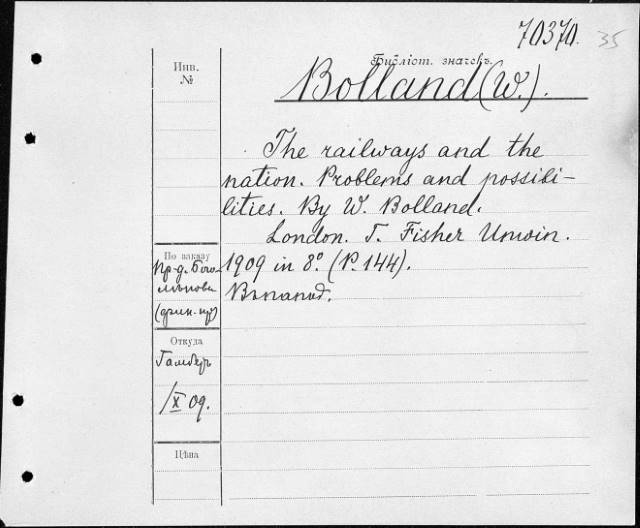 70370. 35
Инв.
№
Библіот. значекъ.
Bolland (W.).
The railways and the
nation. Problems and possibi-
lities. By W. Bolland.
London. T. Fisher Unwin.
1909 in 8º. (P. 144).
Въ папкѣ.
По заказу
Пр-д.
Откуда
/X 09.
Цѣна